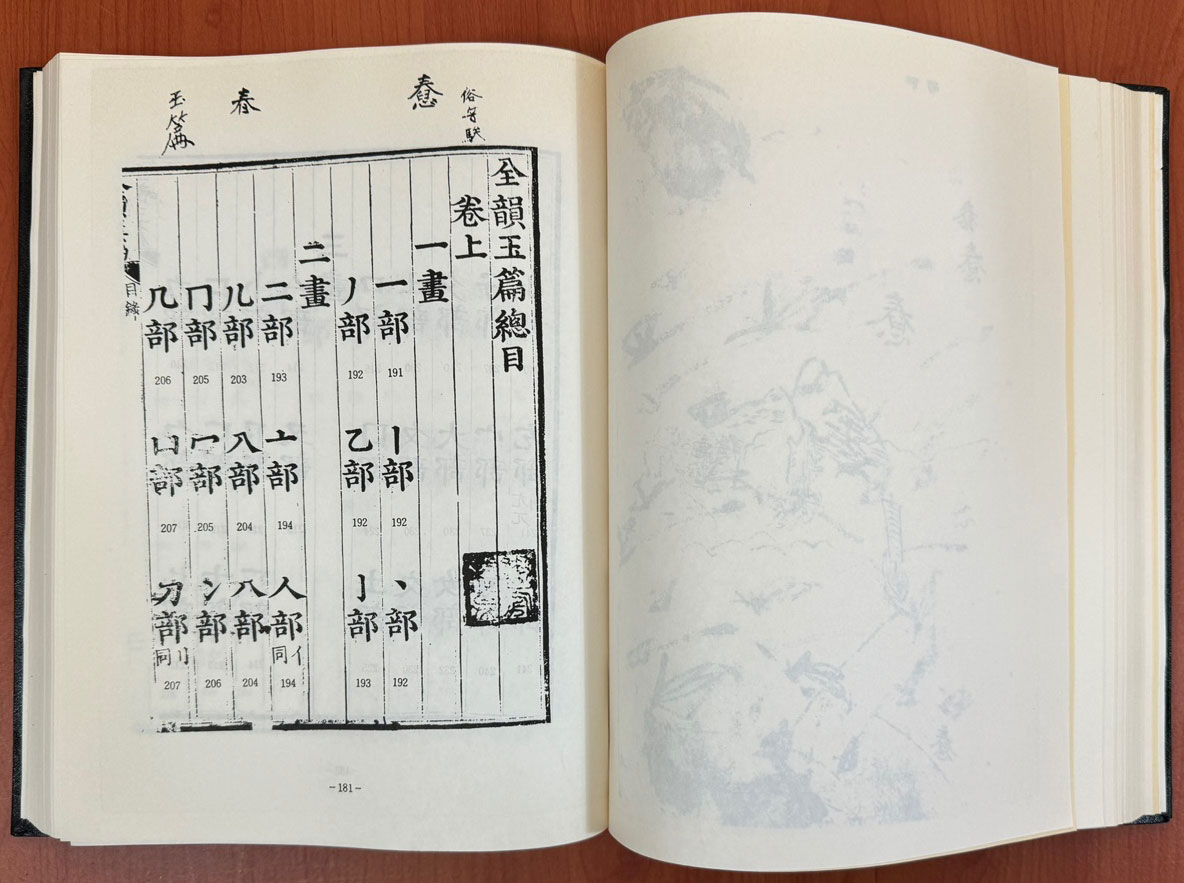 惷
春
玉篇
全韻玉篇總目
卷上
一畫
一部 191 丨部 192 丶部 192
丿部 192 乙部 192 亅部 193
二畫
二部 193 亠部 194 人部 亻同 194
儿部 203 入部 204 八部 204
冂部 205 冖部 205 冫部 206
几部 206 凵部 207 刀部 刂同 207
目錄
-181-